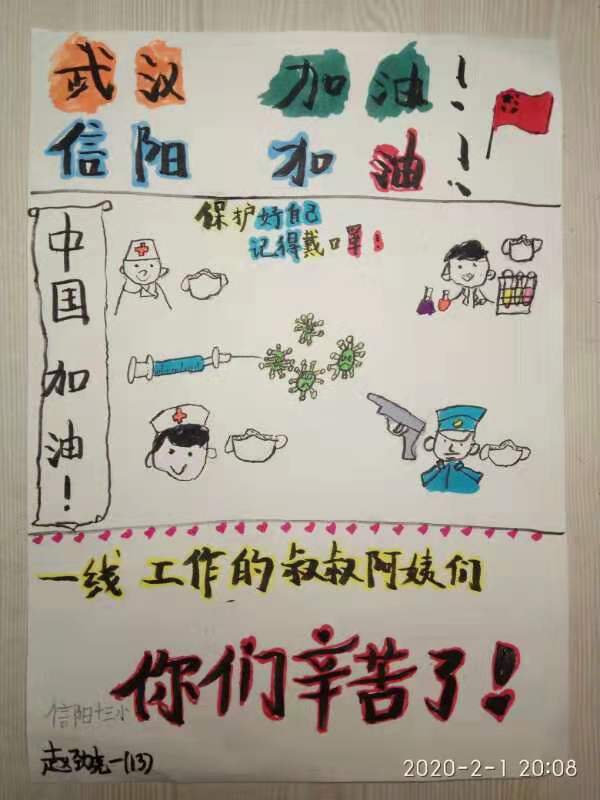 武汉 加油!
信阳 加油!
保护好自己
记得戴口罩!
中国加油!
一线 工作的叔叔阿姨们
你们辛苦了!
信阳十三小
一(13)
2020-2-1 20:08